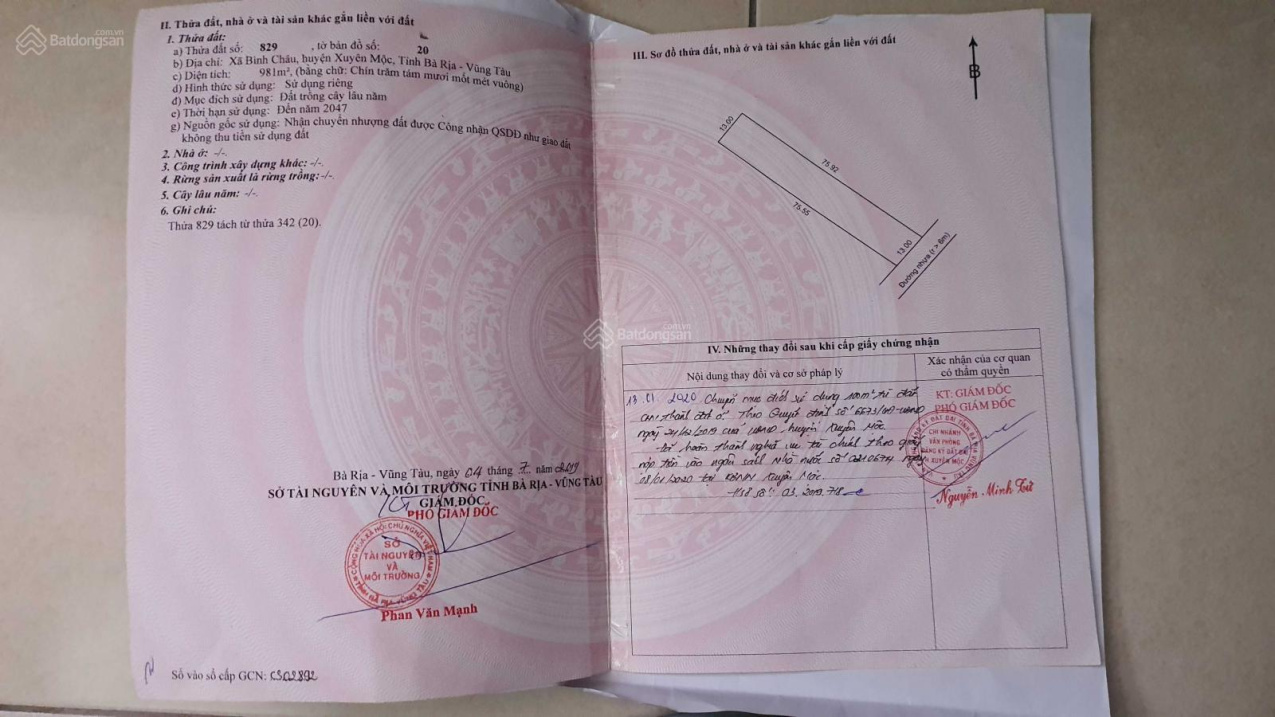 Batdongsan.com.vn
II. Thửa đất, nhà ở và tài sản khác gắn liền với đất
1. Thửa đất:
a) Thửa đất số: 829 , tờ bản đồ số: 20
b) Địa chỉ: Xã Bình Châu, huyện Xuyên Mộc, Tỉnh Bà Rịa - Vũng Tàu
c) Diện tích: 981m², (bằng chữ: Chín trăm tám mươi mốt mét vuông)
d) Hình thức sử dụng: Sử dụng riêng
đ) Mục đích sử dụng: Đất trồng cây lâu năm
e) Thời hạn sử dụng: Đến năm 2047
g) Nguồn gốc sử dụng: Nhận chuyển nhượng đất được Công nhận QSDĐ như giao đất
không thu tiền sử dụng đất
2. Nhà ở: -/-.
3. Công trình xây dựng khác: -/-.
4. Rừng sản xuất là rừng trồng: -/-.
5. Cây lâu năm: -/-.
6. Ghi chú:
Thửa 829 tách từ thửa 342 (20).
Bà Rịa - Vũng Tàu, ngày 04 tháng 7 năm 2019
SỞ TÀI NGUYÊN VÀ MÔI TRƯỜNG TỈNH BÀ RỊA - VŨNG TÀU
GIÁM ĐỐC
PHÓ GIÁM ĐỐC
SỞ
TÀI NGUYÊN
VÀ
MÔI TRƯỜNG
Phan Văn Mạnh
Số vào sổ cấp GCN: CS02892
III. Sơ đồ thửa đất, nhà ở và tài sản khác gắn liền với đất
B
13.00
75.92
75.55
13.00
Đường nhựa (r > 6m)
Batdongsan.com.vn
IV. Những thay đổi sau khi cấp giấy chứng nhận
Nội dung thay đổi và cơ sở pháp lý
Xác nhận của cơ quan
có thẩm quyền
13.01.2020 Chuyển mục đích sử dụng 100m² từ đất
thành đất ở. Theo Quyết định số 6673/QĐ-UBND
ngày 24/12/2019 của UBND huyện Xuyên Mộc.
hoàn thành nghĩa vụ tài chính theo giấy
nộp tiền vào ngân sách Nhà nước số 0210674 ngày
08/01/2020 tại KBNN Xuyên Mộc.
KT. GIÁM ĐỐC
PHÓ GIÁM ĐỐC
CHI NHÁNH
VĂN PHÒNG
ĐĂNG KÝ ĐẤT ĐAI
XUYÊN MỘC
Nguyễn Minh Tứ